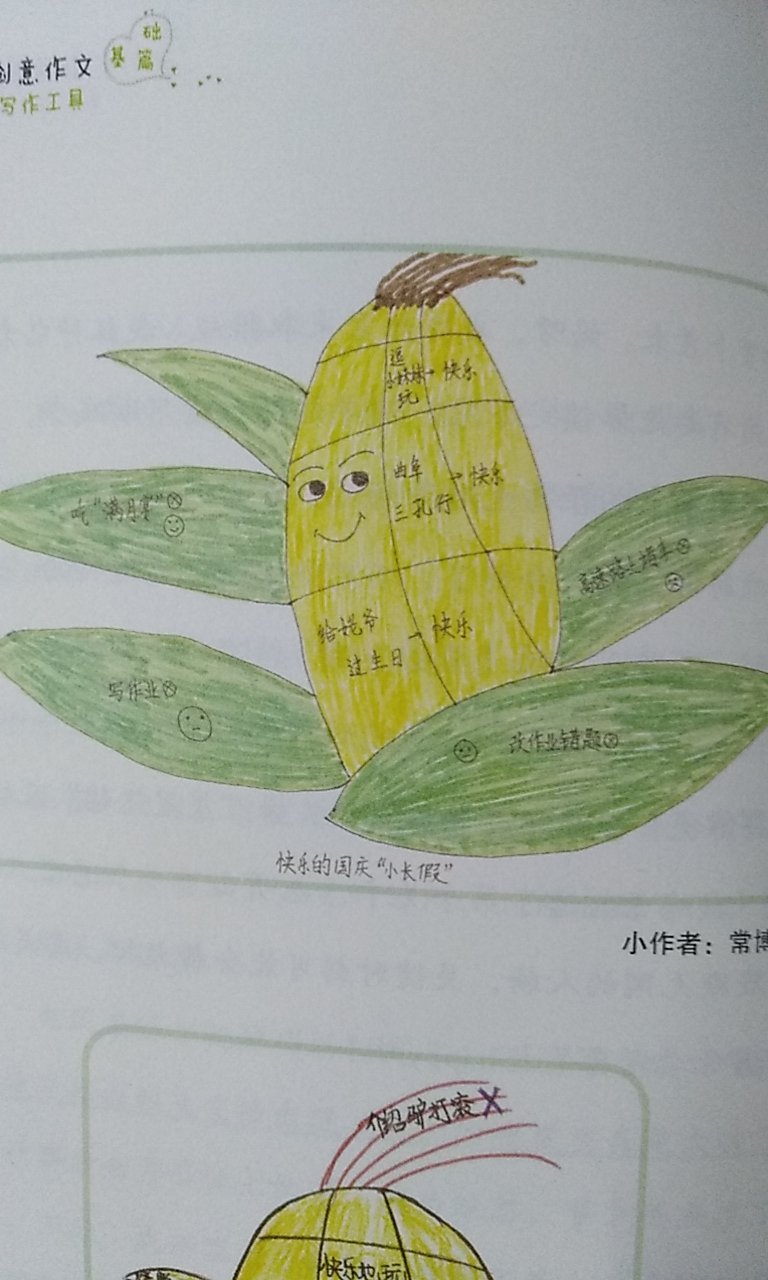 创意作文
基础篇
写作工具
逗
小妹妹→快乐
玩
曲阜→快乐
三孔行
给姥爷→快乐
过生日
吃“满月宴”ⓧ
高速路上堵车ⓧ
写作业ⓧ
改作业错题ⓧ
快乐的国庆“小长假”
小作者：常博
介绍驴打滚X
快乐地玩